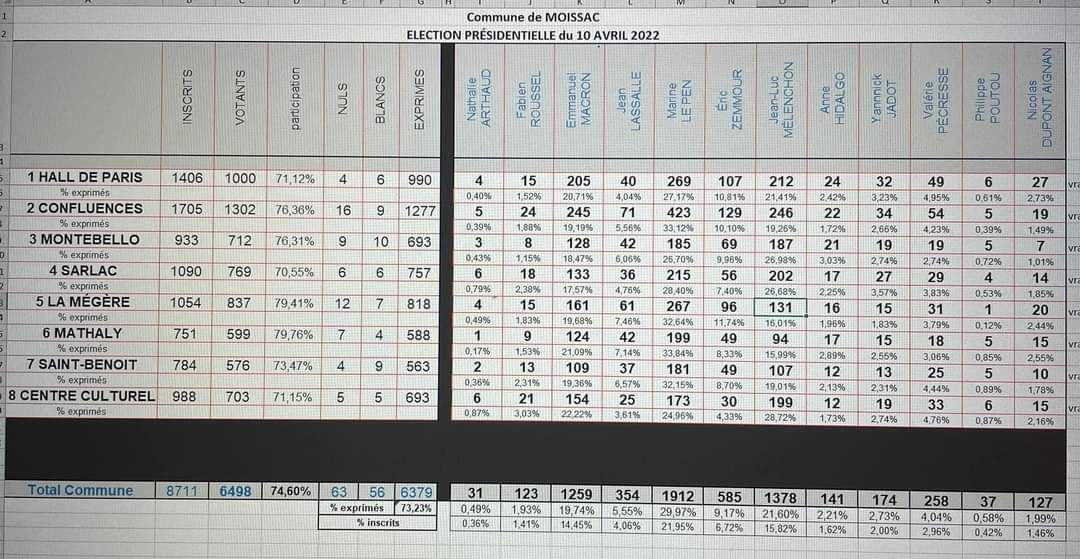 Commune de MOISSAC
ELECTION PRÉSIDENTIELLE du 10 AVRIL 2022
INSCRITS VOTANTS participation NULS BLANCS EXPRIMES Nathalie ARTHAUD Fabien ROUSSEL Emmanuel MACRON Jean LASSALLE Marine LE PEN Éric ZEMMOUR Jean-Luc MÉLENCHON Anne HIDALGO Yannnick JADOT Valérie PÉCRESSE Philippe POUTOU Nicolas DUPONT AIGNAN
1 HALL DE PARIS 1406 1000 71,12% 4 6 990 4 15 205 40 269 107 212 24 32 49 6 27
% exprimés 0,40% 1,52% 20,71% 4,04% 27,17% 10,81% 21,41% 2,42% 3,23% 4,95% 0,61% 2,73%
2 CONFLUENCES 1705 1302 76,36% 16 9 1277 5 24 245 71 423 129 246 22 34 54 5 19
% exprimés 0,39% 1,88% 19,19% 5,56% 33,12% 10,10% 19,26% 1,72% 2,66% 4,23% 0,39% 1,49%
3 MONTEBELLO 933 712 76,31% 9 10 693 3 8 128 42 185 69 187 21 19 19 5 7
% exprimés 0,43% 1,15% 18,47% 6,06% 26,70% 9,96% 26,98% 3,03% 2,74% 2,74% 0,72% 1,01%
4 SARLAC 1090 769 70,55% 6 6 757 6 18 133 36 215 56 202 17 27 29 4 14
% exprimés 0,79% 2,38% 17,57% 4,76% 28,40% 7,40% 26,68% 2,25% 3,57% 3,83% 0,53% 1,85%
5 LA MÉGÈRE 1054 837 79,41% 12 7 818 4 15 161 61 267 96 131 16 15 31 1 20
% exprimés 0,49% 1,83% 19,68% 7,46% 32,64% 11,74% 16,01% 1,96% 1,83% 3,79% 0,12% 2,44%
6 MATHALY 751 599 79,76% 7 4 588 1 9 124 42 199 49 94 17 15 18 5 15
% exprimés 0,17% 1,53% 21,09% 7,14% 33,84% 8,33% 15,99% 2,89% 2,55% 3,06% 0,85% 2,55%
7 SAINT-BENOIT 784 576 73,47% 4 9 563 2 13 109 37 181 49 107 12 13 25 5 10
% exprimés 0,36% 2,31% 19,36% 6,57% 32,15% 8,70% 19,01% 2,13% 2,31% 4,44% 0,89% 1,78%
8 CENTRE CULTUREL 988 703 71,15% 5 5 693 6 21 154 25 173 30 199 12 19 33 6 15
% exprimés 0,87% 3,03% 22,22% 3,61% 24,96% 4,33% 28,72% 1,73% 2,74% 4,76% 0,87% 2,16%
Total Commune 8711 6498 74,60% 63 56 6379 31 123 1259 354 1912 585 1378 141 174 258 37 127
% exprimés 73,23% 0,49% 1,93% 19,74% 5,55% 29,97% 9,17% 21,60% 2,21% 2,73% 4,04% 0,58% 1,99%
% inscrits 0,36% 1,41% 14,45% 4,06% 21,95% 6,72% 15,82% 1,62% 2,00% 2,96% 0,42% 1,46%